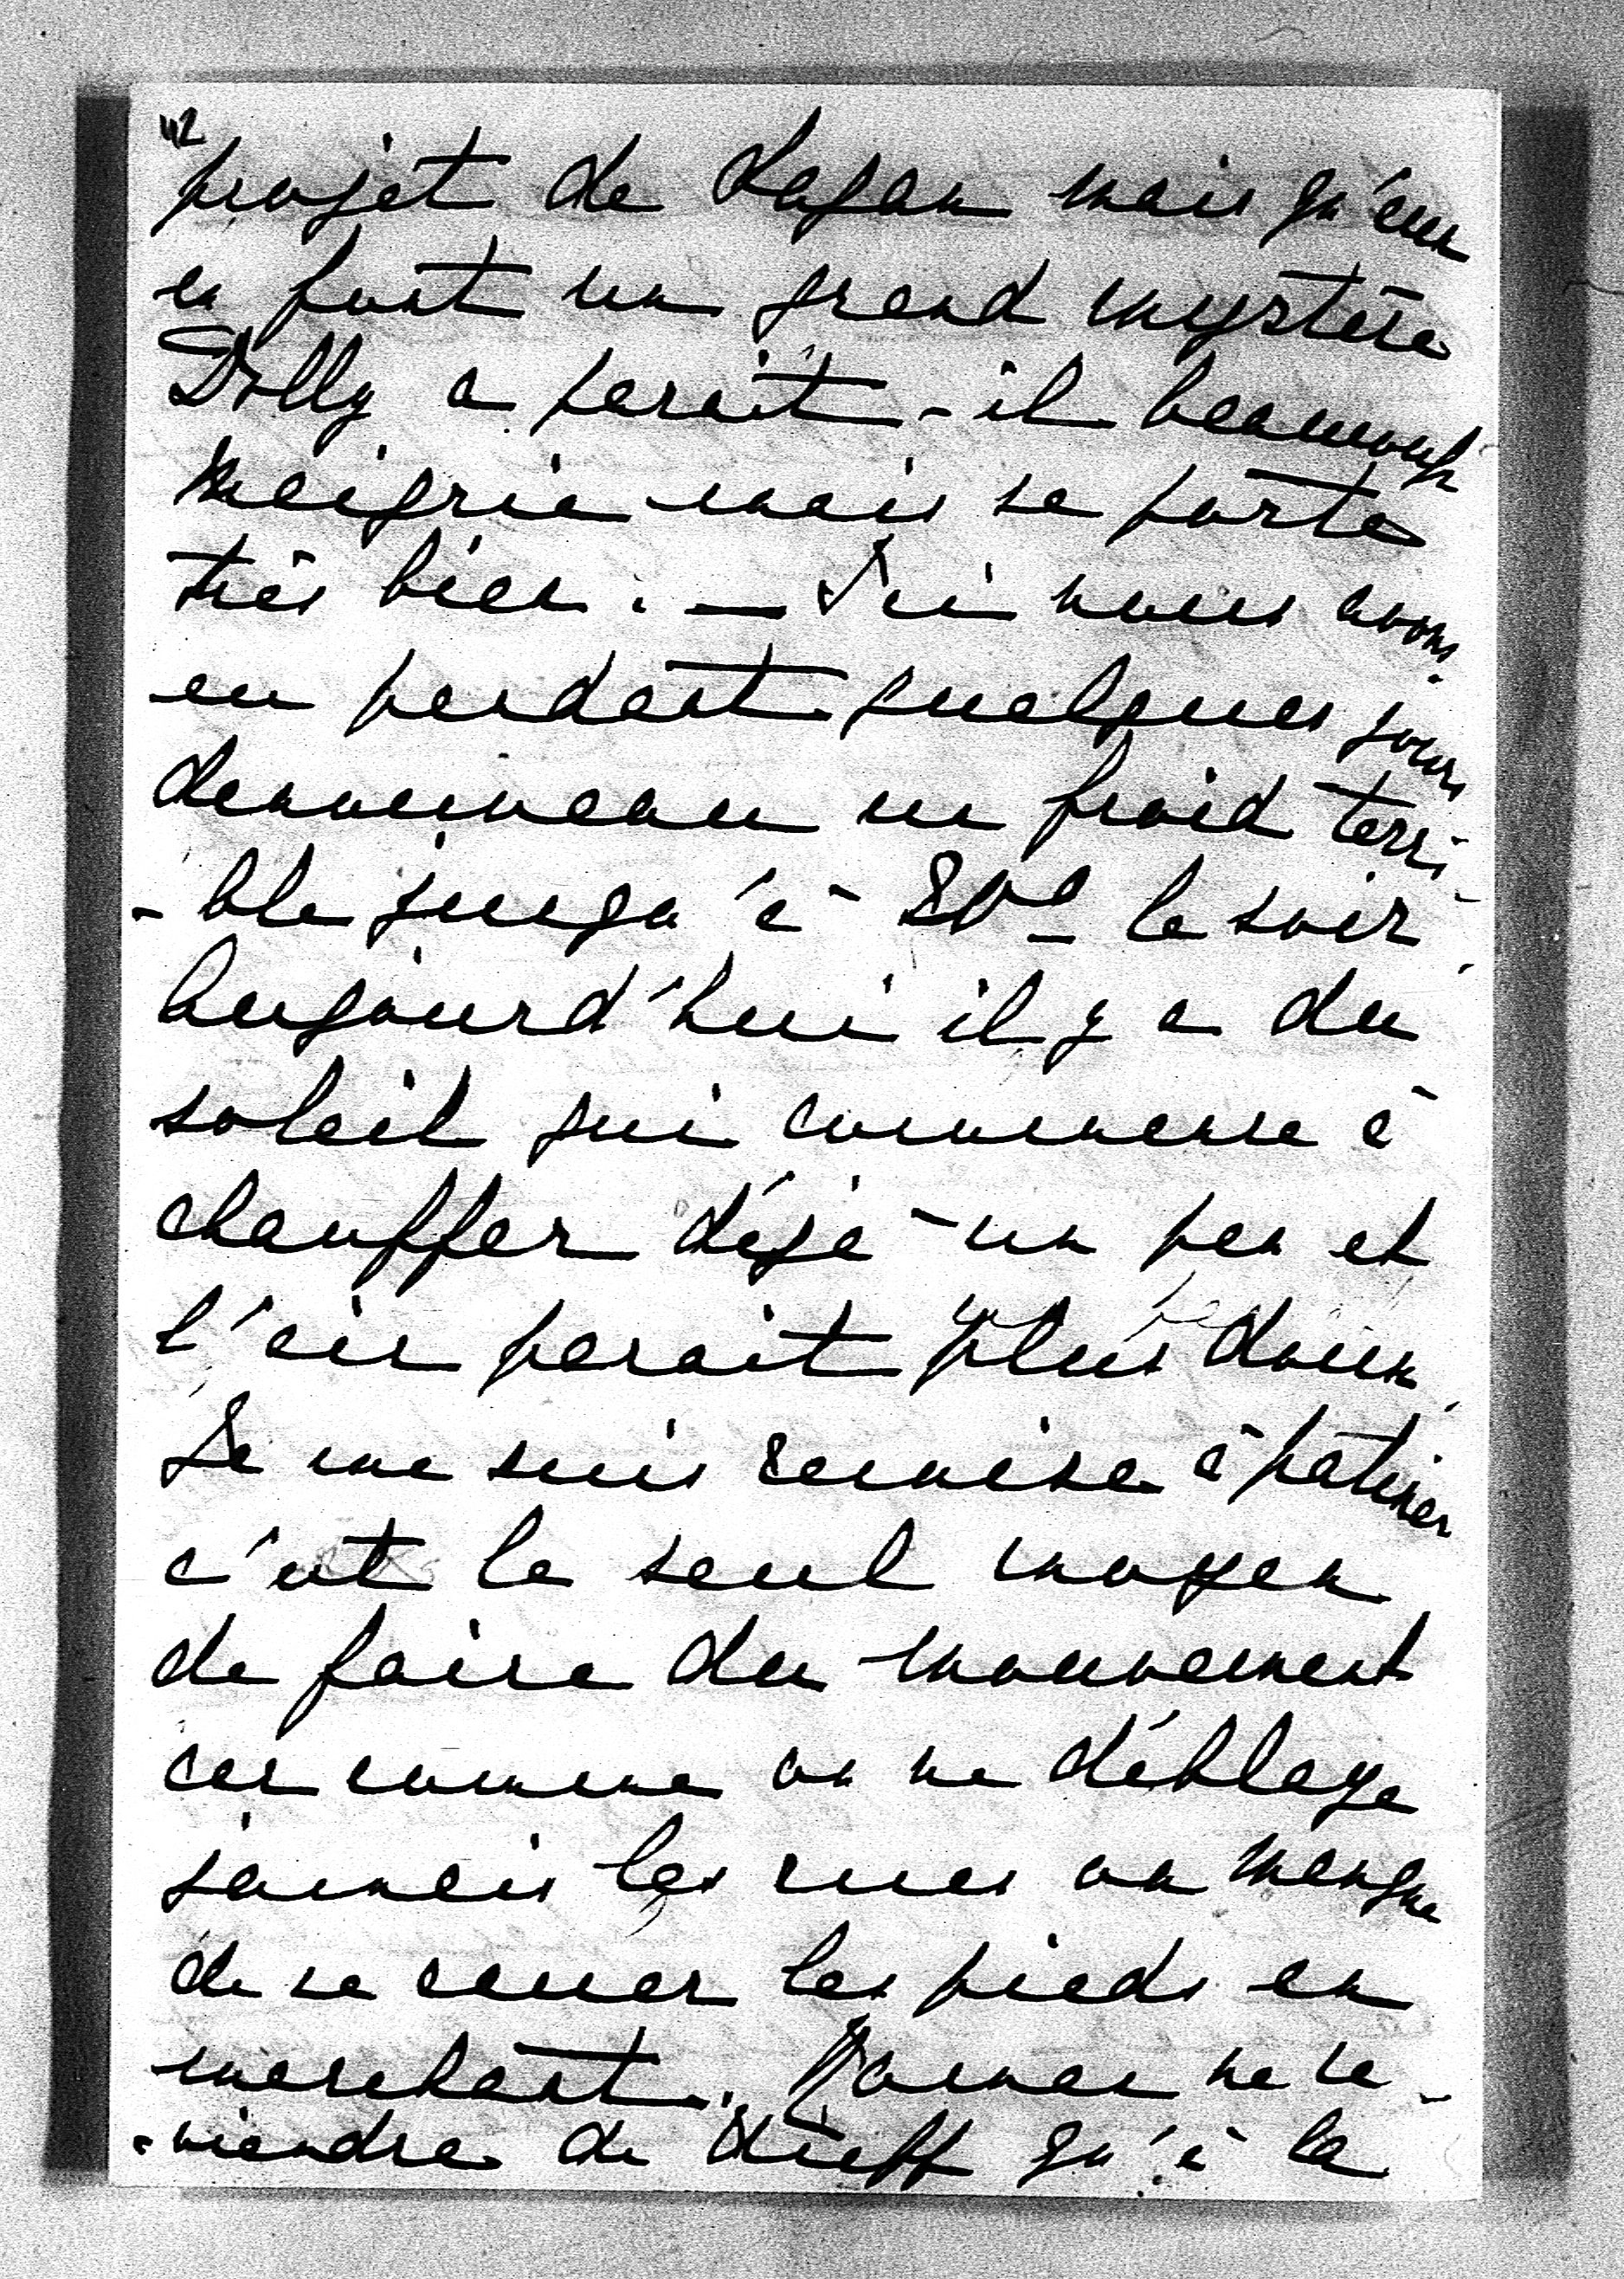 projet de Lagan mais qu'eux
en font un grand mystère
Dolly a parait-il beaucoup
maigrie mais se porte
très bien. — Ici nous avons
eu pendant quelques jours
denouveau un froid terri-
-ble jusqu'à 20° le soir
Aujourd'hui il y a du
soleil qui commence à
chauffer déjà un peu et
l'air parait plus doux.
Je me suis remise à patiner
c'est le seul moyen
de faire du mouvement
car comme on ne déblaye
jamais les rues on manque
de se casser les pieds en
marchant. ne re-
-viendra de Kieff qu'à la